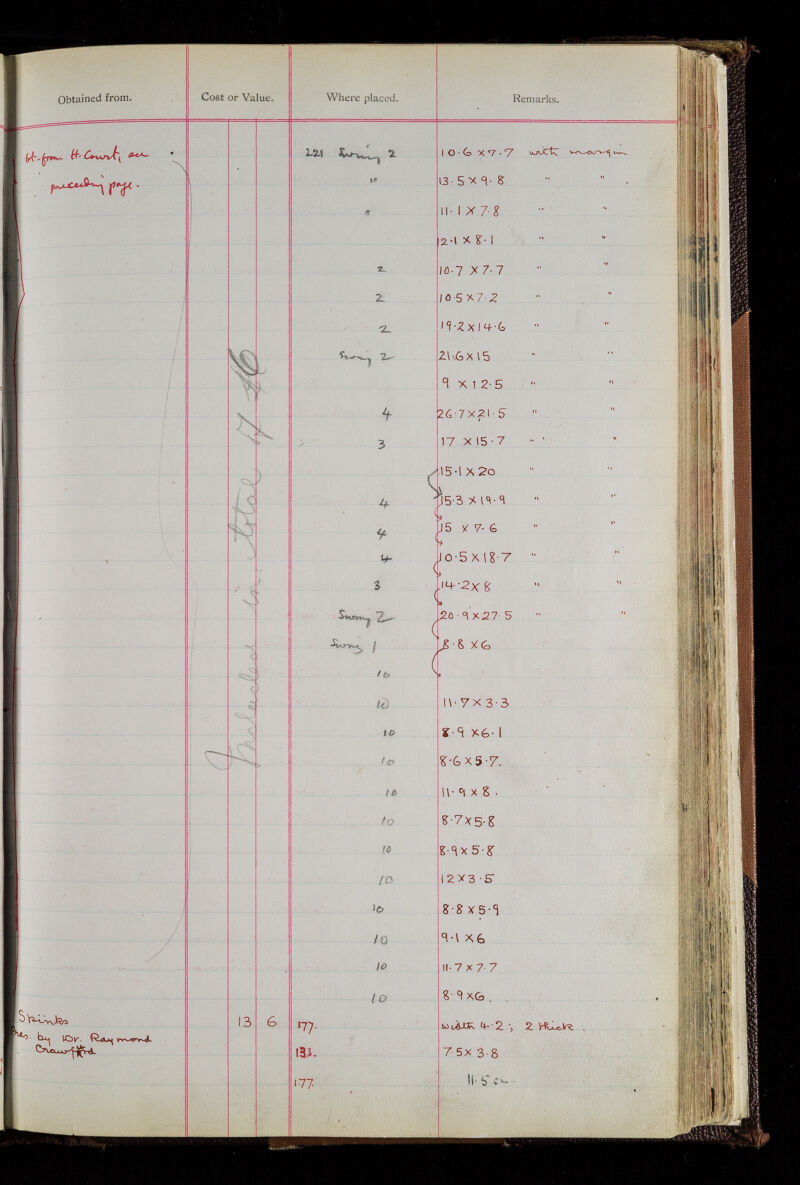 Obtained from. Cost or Value. Where placed. Remarks.
bt. from H. Court, see 221 Swing 2 10·6 x 7·7 with margin
preceding page. " 13·5 x 9·8 " "
" 11·1 x 7·8 " "
12·1 x 8·1 " "
2 10·7 x 7·7 " "
2 10·5 x 7·2 " "
2 19·2 x 14·6 " "
Swing 2 21·6 x 15 " "
9 x 12·5 " "
4 26·7 x 21·5 " "
3 17 x 15·7 " "
15·1 x 20 " "
4 15·3 x 19·9 " "
4 15 x 7·6 " "
4 10·5 x 18·7 " "
3 14·2 x 8 " "
Swing 2 20·9 x 27·5 " "
Swing 1 8·8 x 6
10
10 11·7 x 3·3
10 8·9 x 6·1
10 8·6 x 5·7.
10 11·9 x 8.
10 8·7 x 5·8
10 8·9 x 5·8
10 12 x 3·5
10 8·8 x 5·9
10 9·1 x 6
10 11·7 x 7·7
10 8·9 x 6.
Included in total
Spinks 13 6 177. width 4·2; 2 thick.
Pres. by Dr. Raymond
Crawfurd 133. 7·5 x 3·8
177. 11·5 cm